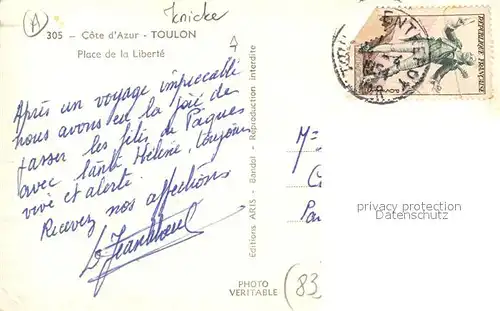 A
Knicke
305 - Côte d'Azur - TOULON
Place de la Liberté
Après un voyage impeccable
nous avons eu la joie de
passer les fêtes de Pâques
avec tante Hélène, toujours
vive et alerte.
Recevez nos affections
Editions ARIS - Bandol - Reproduction interdite
PHOTO
VERITABLE
(83)
REPUBLIQUE FRANÇAISE
M=
privacy protection
Datenschutz